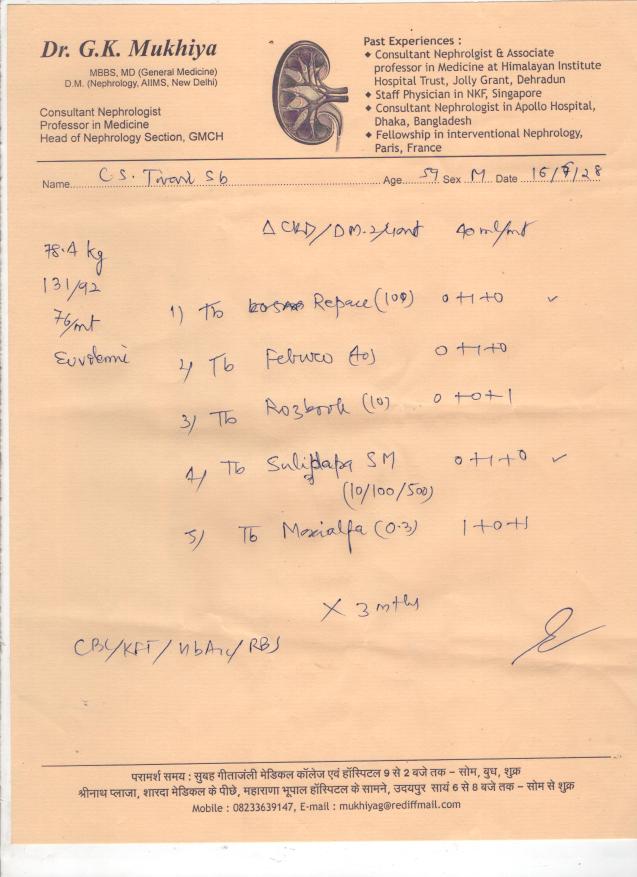 Dr. G.K. Mukhiya
MBBS, MD (General Medicine)
D.M. (Nephrology, AIIMS, New Delhi)
Consultant Nephrologist
Professor in Medicine
Head of Nephrology Section, GMCH
Past Experiences :
◆ Consultant Nephrolgist & Associate
professor in Medicine at Himalayan Institute
Hospital Trust, Jolly Grant, Dehradun
◆ Staff Physician in NKF, Singapore
◆ Consultant Nephrologist in Apollo Hospital,
Dhaka, Bangladesh
◆ Fellowship in interventional Nephrology,
Paris, France
Name C.S. Sb Age 59 Sex M Date
Δ CKD/DM-2/ 40 ml/mt
78.4 kg
131/92
76/mt
1) Tb Repace (100) 0+1+0 ✓
2) Tb 0+1+0
3) Tb (10) 0+0+1
4) Tb SM 0+1+0 ✓
(10/100/500)
5) Tb Moxialfa (0.3) 1+0+1
X 3 mths
CBC/KFT/HbA1c/RBS
परामर्श समय : सुबह गीताजंली मेडिकल कॉलेज एवं हॉस्पिटल 9 से 2 बजे तक – सोम, बुध, शुक्र
श्रीनाथ प्लाजा, शारदा मेडिकल के पीछे, महाराणा भूपाल हॉस्पिटल के सामने, उदयपुर सायं 6 से 8 बजे तक – सोम से शुक्र
Mobile : 08233639147, E-mail : mukhiyag@rediffmail.com